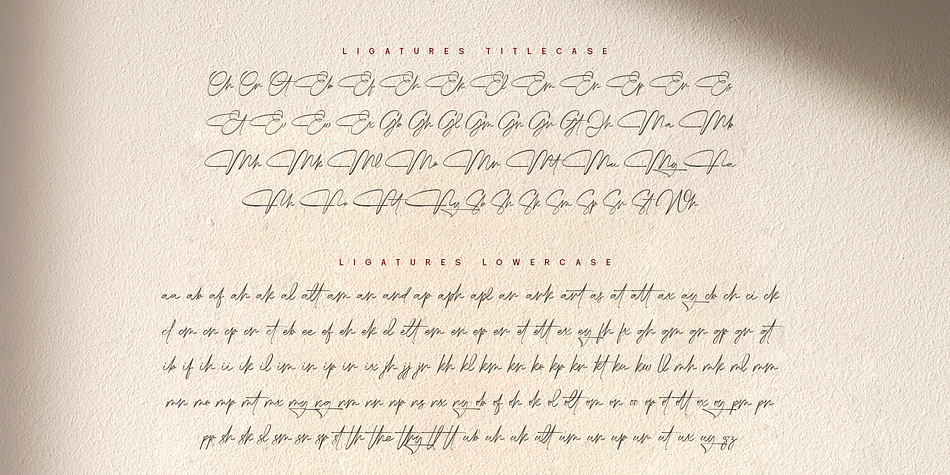 LIGATURES TITLECASE
Oh On Ot Eb Ef Eh Ek El Em En Ep Er Es
Et Ev Ew Ex Gb Gh Gl Gm Gn Gr Gt Jh Ma Mb
Mh Mk Ml Mo Mn Mt Mu My Na
Nh No Nt Ny So Sh Sk Sm Sp Sr St Wh
LIGATURES LOWERCASE
aa ab af ah ak al alt am an and ap aph apl ar ark art as at att ax ay cb ch ci ck
cl cm cn cp cr ct eb ee ef eh ek el elt em en ep er et ett ex ey fh fr gh gm gn gp gr gt
ib if ih ii ik il im in ip ir ix jh jj jr kh kl km kn ko kp kr kt ku kw ll mh mk ml mm
mn mo mp mt mx my na nm nn np ns nx ny ob of oh ok ol olt om on oo op ot ott ox oy pm pn
pp sh sk sl sm sn sp st th the thy tl tt ub uh uk ult um un up ur ut ux uy zz